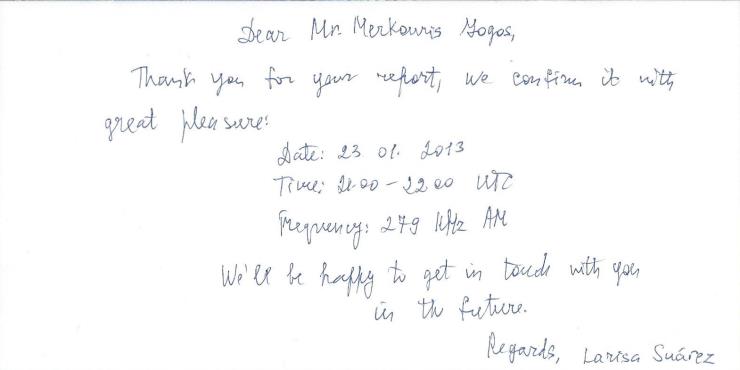 Dear Mr. Merkouris Gogos,
Thank you for your report, we confirm it with
great pleasure:
Date: 23 01. 2013
Time: 21.00 - 22.00 UTC
Frequency: 279 kHz AM
We'll be happy to get in touch with you
in the future.
Regards, Larisa Suárez